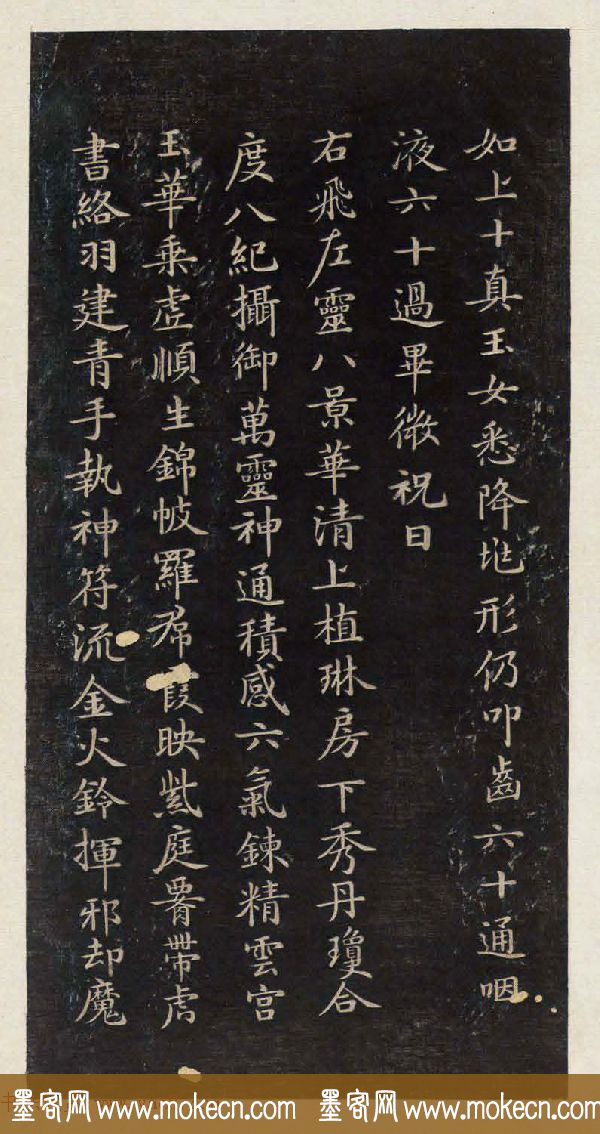 如上十真玉女悉降地形仍叩齒六十通咽
液六十過畢微祝曰
右飛左靈八景華清上植琳房下秀丹瓊合
度八紀攝御萬靈神通積感六氣鍊精雲宮
玉華乘虛順生錦帔羅帬映紫庭帶虎
書絡羽建青手執神符流金火鈴揮邪却魔
墨客网 www.mokecn.com 墨客网 www.mokecn.com